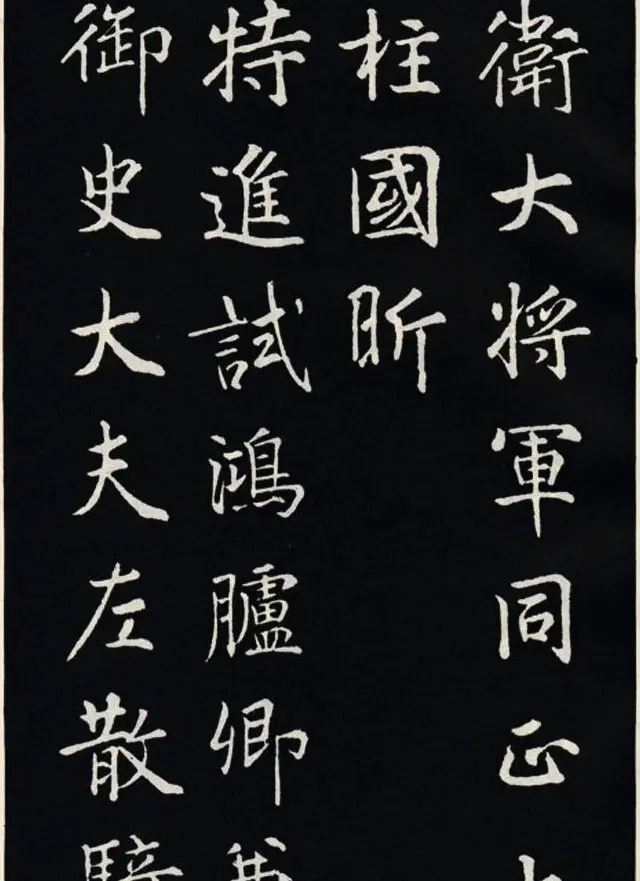 衛大將軍同正上
柱國昕
特進試鴻臚卿兼
御史大夫左散騎